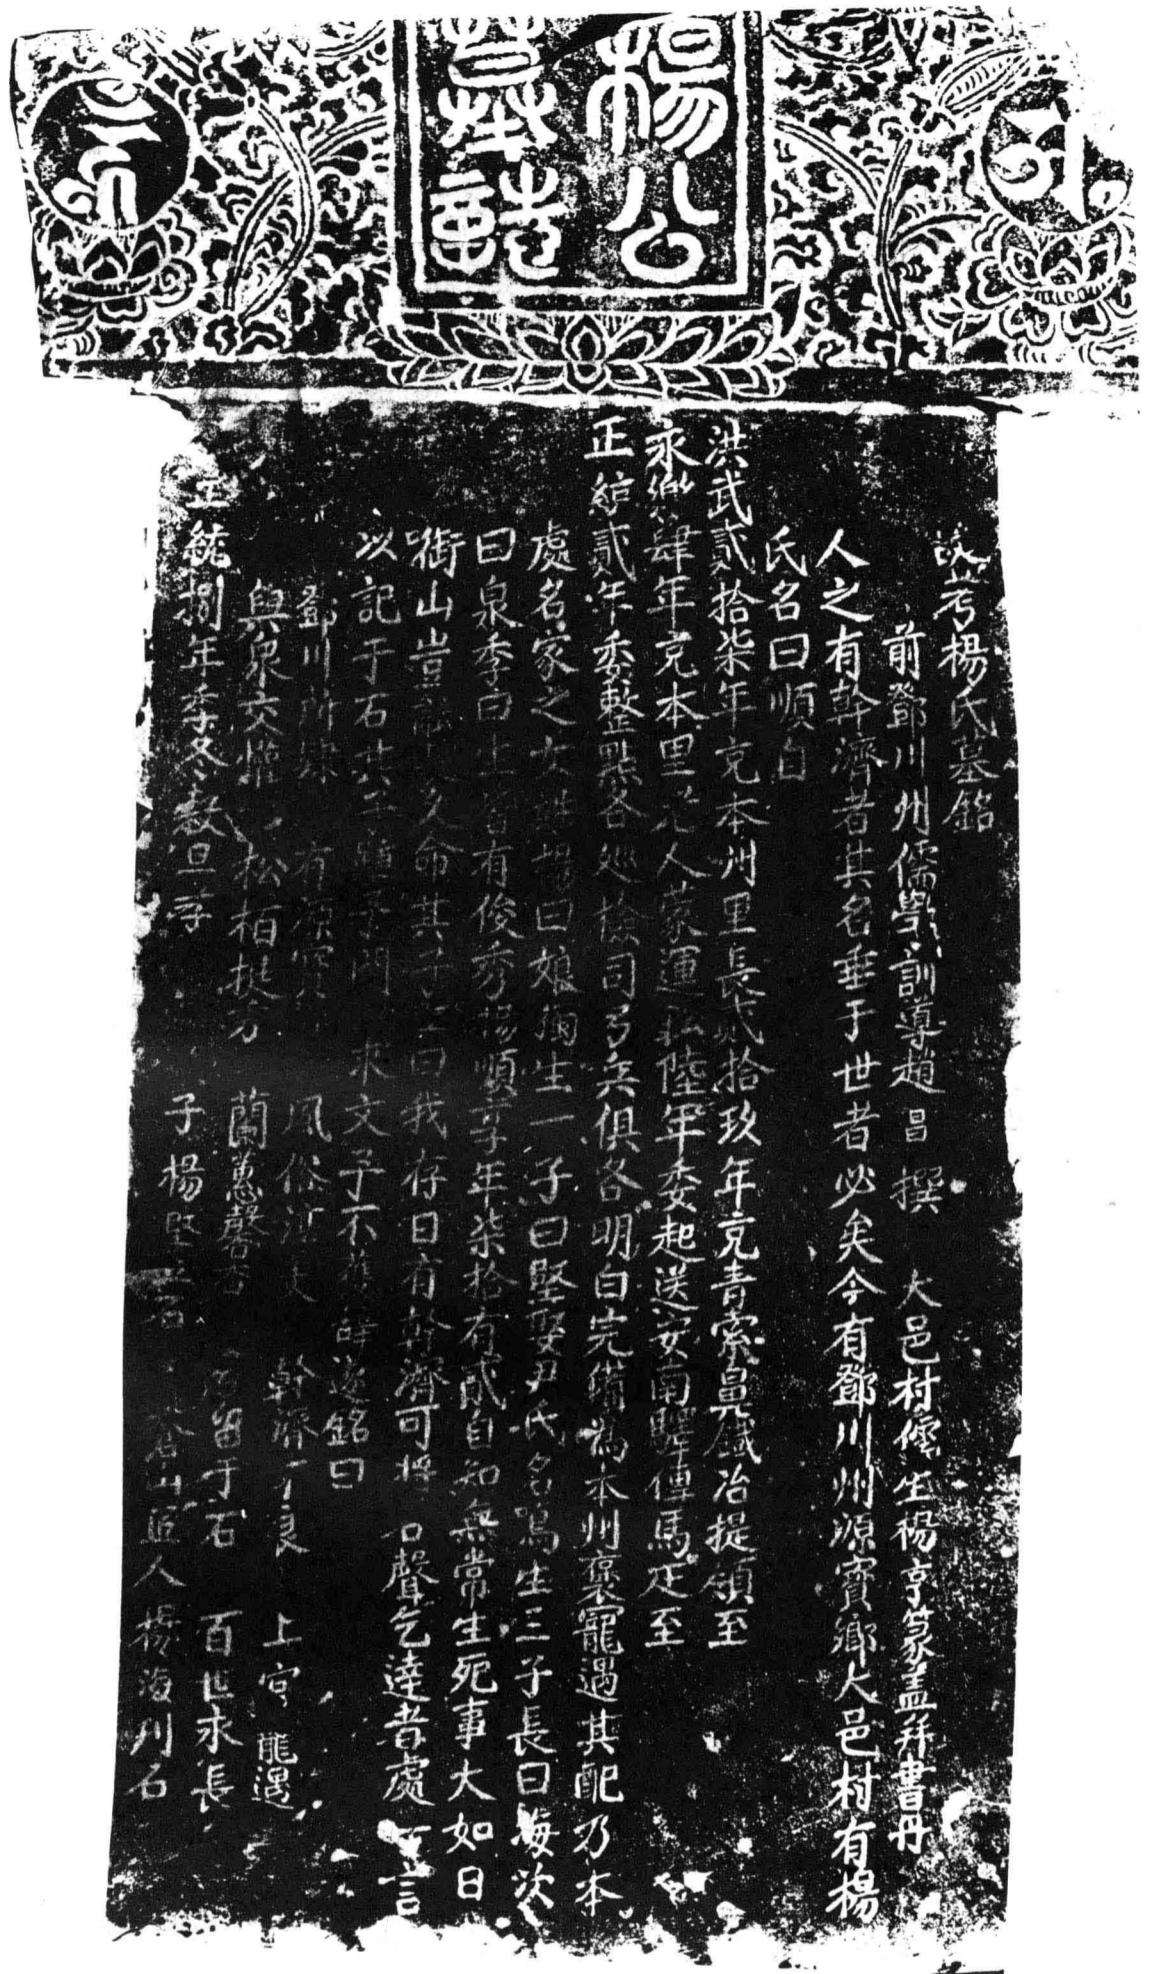 楊公
墓誌
故考楊氏墓銘
前鄧川州儒學訓導趙昌撰 大邑村儒生楊亨篆盖并書丹
人之有幹濟者其名垂于世者必矣今有鄧川州源賓鄉大邑村有楊
氏名曰順自
洪武貳拾柒年充本州里長貳拾玖年充青索鼻鐵冶提領至
永樂肆年充本里老人蒙運粮陸年委起送安南驛傳馬疋至
正統貳年委整點各廵檢司弓兵俱各明白完備為本州褒寵遇其配乃本
處名家之女 楊曰娘 生一子曰堅娶尹氏名鳴生三子長曰海次
曰泉季曰 有俊秀楊順享年柒拾有貳自知無常生死事大如日
銜山豈 久命其子堅曰我存日有幹濟可将 口聲乞達者處 言
以記于石其子 求文予不獲辝遂銘曰
鄧川所隷 有源賓 風俗 幹濟 良 上官寵遇
與衆交 松柏挺 蘭蕙馨香 留于石 百世永長
正統捌年季冬穀旦 子楊堅 石 蒼山匠人楊海刋石